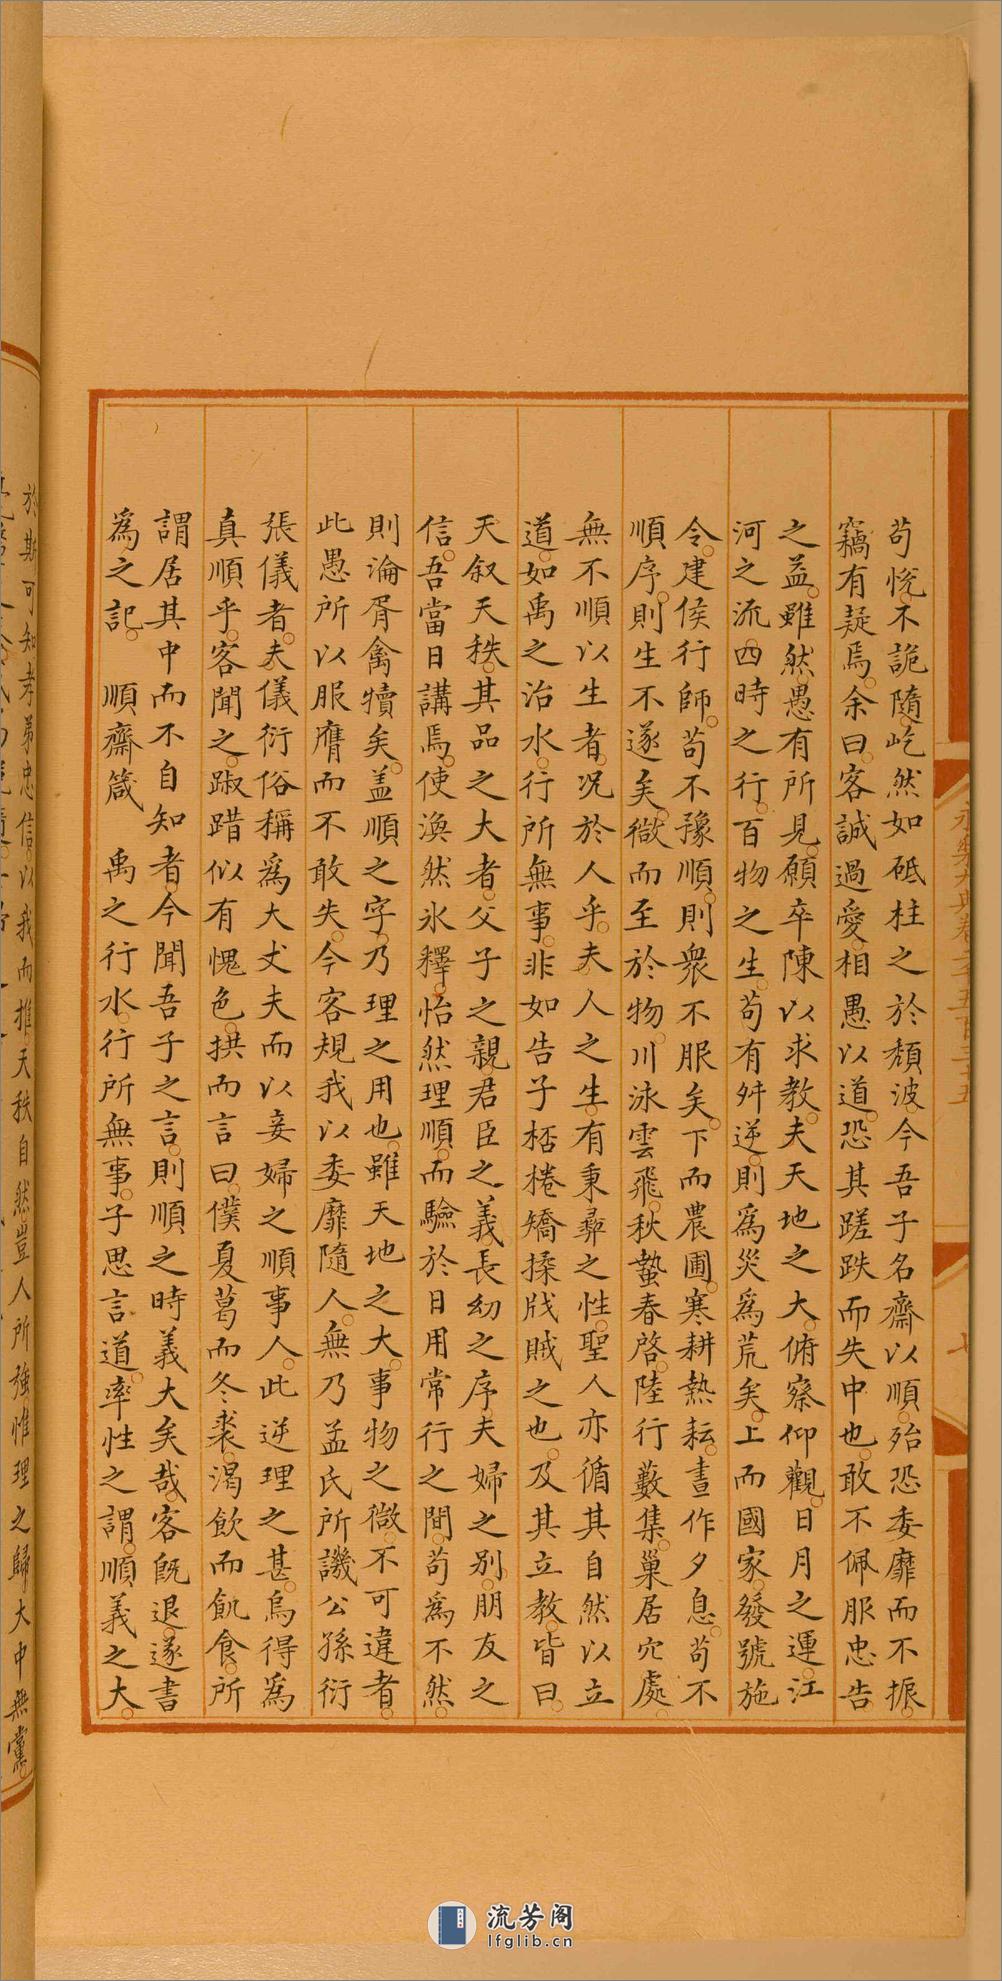 永樂大典卷二千五百三十五
七
苟悅不詭隨屹然如砥柱之於頹波今吾子名齋以順殆恐委靡而不振
竊有疑焉余曰客誠過愛相愚以道恐其蹉跌而失中也敢不佩服忠告
之益雖然愚有所見願卒陳以求教夫天地之大俯察仰觀日月之運江
河之流四時之行百物之生苟有舛逆則為災為荒矣上而國家發號施
令建侯行師苟不豫順則衆不服矣下而農圃寒耕熱耘晝作夕息苟不
順序則生不遂矣微而至於物川泳雲飛秋蟄春啓陸行藪集巢居穴處
無不順以生者况於人乎夫人之生有秉彛之性聖人亦循其自然以立
道如禹之治水行所無事非如告子桮棬矯揉戕賊之也及其立教皆曰
天叙天秩其品之大者父子之親君臣之義長幼之序夫婦之别朋友之
信吾當日講焉使渙然氷釋怡然理順而驗於日用常行之間苟為不然
則淪胥禽犢矣盖順之字乃理之用也雖天地之大事物之微不可違者
此愚所以服膺而不敢失今客規我以委靡隨人無乃孟氏所譏公孫衍
張儀者夫儀衍俗稱為大丈夫而以妾婦之順事人此逆理之甚烏得為
真順乎客聞之踧踖似有愧色拱而言曰僕夏葛而冬裘渴飲而飢食所
謂居其中而不自知者今聞吾子之言則順之時義大矣哉客既退遂書
為之記 順齋箴 禹之行水行所無事子思言道率性之謂順義之大
於斯可知孝弟忠信以我而推天秩自然豈人所強惟理之歸大中無黨
流芳阁
lfglib.cn